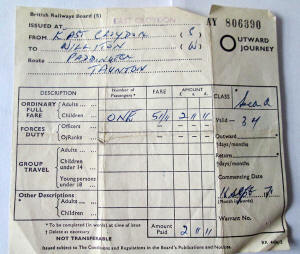 British Railways Board (S)
EAST CROYDON
AY 806390
ISSUED AT
FROM EAST CROYDON (S)
TO WILLITON (W)
Route PADDINGTON
TAUNTON
OUTWARD
JOURNEY
DESCRIPTION Number of Passengers* FARE AMOUNT
£ s. d.
CLASS
Second
ORDINARY FULL FARE Adults ... ONE 51/11 2 11 11
Children ...
Valid
3 M
FORCES DUTY Officers ...
O/Ranks
Outward
†days/months
GROUP TRAVEL Adults ...
Children under 14
Young persons under 18
Return
†days/months
Commencing Date
16
(Month in words)
Other Descriptions
Adults ...
Children ...
Warrant No.
* To be completed (in words) at time of issue
† Delete as necessary
NOT TRANSFERABLE
Amount Paid 2 11 11
Issued subject to the Conditions and Regulations in the Board's Publications and Notices